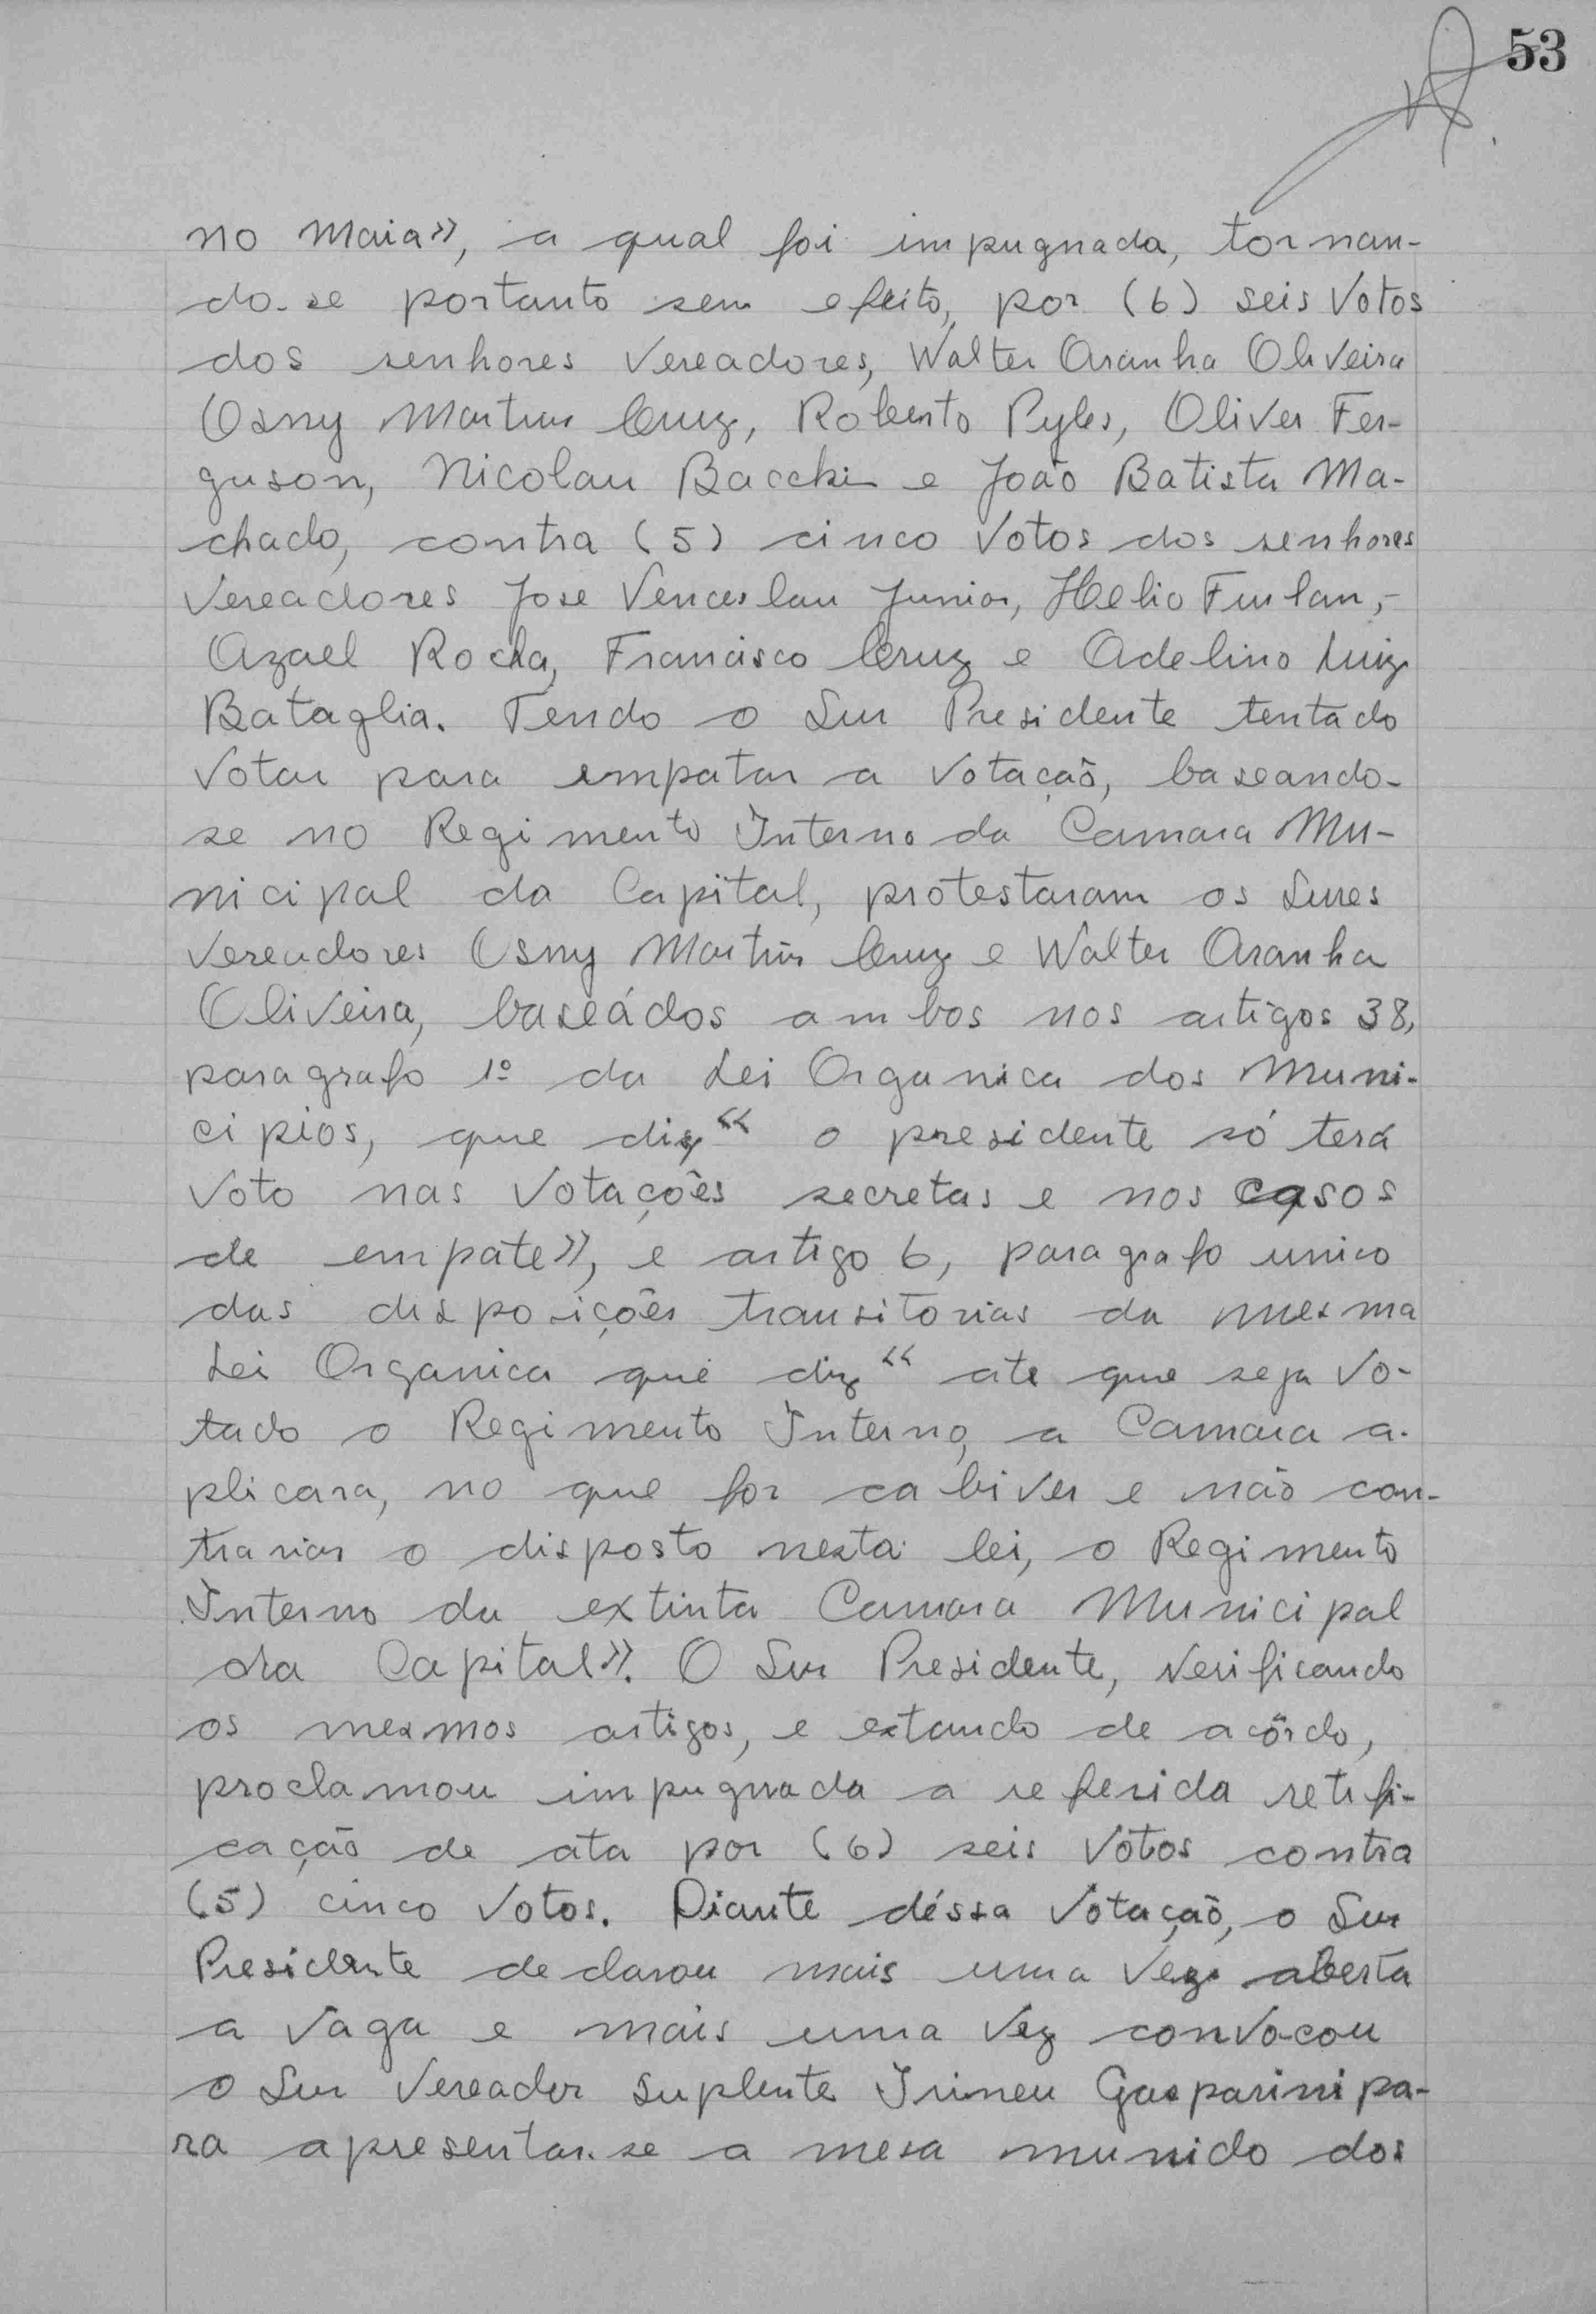 53
no Maia», a qual foi impugnada, tornan-
do-se portanto sem efeito, por (6) seis Votos
dos senhores Vereadores, Walter Aranha Oliveira
Osny Martins Cruz, Roberto Pyles, Oliver Fer-
guson, Nicolau Bacchi e João Batista Ma-
chado, contra (5) cinco Votos dos senhores
Vereadores Jose Venceslau Junior, Helio Furlan,-
Azael Rocha, Francisco Cruz e Adelino Luiz
Bataglia. Tendo o Snr Presidente tentado
Votar para empatar a Votação, baseando-
se no Regimento Interno da Camara Mu-
nicipal da Capital, protestaram os Snres
Vereadores Osny Martins Cruz e Walter Aranha
Oliveira, baseádos ambos nos artigos 38,
paragrafo 1º da Lei Organica dos Muni-
cipios, que diz “ o presidente só terá
Voto nas Votações secretas e nos casos
de empate», e artigo 6, paragrafo unico
das disposições transitorias da mesma
Lei Organica que diz “ ate que seja Vo-
tado o Regimento Interno, a Camara a-
plicara, no que for cabiver e não con-
trariar o disposto nesta lei, o Regimento
Interno da extinta Camara Municipal
da Capital». O Snr Presidente, Verificando
os mesmos artigos, e estando de acôrdo,
proclamou impugnada a referida retifi-
cação de ata por (6) seis Votos contra
(5) cinco Votos. Diante déssa Votação, o Snr
Presidente declarou mais uma Vez aberta
a Vaga e mais uma Vez convocou
o Snr Vereador Suplente Irineu Gasparini pa-
ra apresentar-se a mesa munido dos